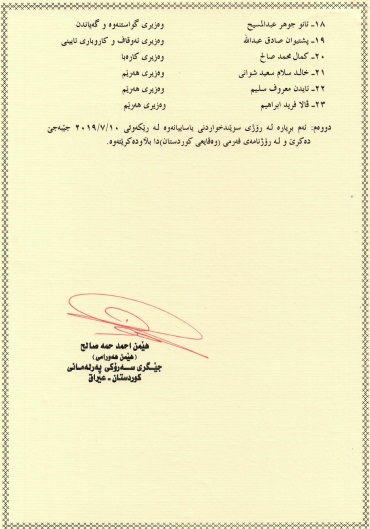 ١٨ـ ئانو جوهر عبدالمسيح وەزیری گواستنەوە و گەیاندن
١٩ـ پشتیوان صادق عبدالله وەزیری ئەوقاف و کاروباری ئایینی
٢٠ـ کمال محمد صالح وەزیری کارەبا
٢١ـ خالد سلام سعيد شوانی وەزیری هەرێم
٢٢ـ ئایدن معروف سليم وەزیری هەرێم
٢٣ـ ڤالا فريد ابراهيم وەزیری هەرێم
دووەم: ئەم بڕیارە لە ڕۆژی سوێندخواردنی یاساییانەوە لە ڕێکەوتی ٢٠١٩/٧/١٠ جێبەجێ
دەکرێ و لە ڕۆژنامەی فەرمی (وەقایعی کوردستان)دا بڵاودەکرێتەوە.
هێمن احمد حمه صالح
(هێمن هەورامی)
جێگری سەرۆکی پەرلەمانی
کوردستان ـ عێراق